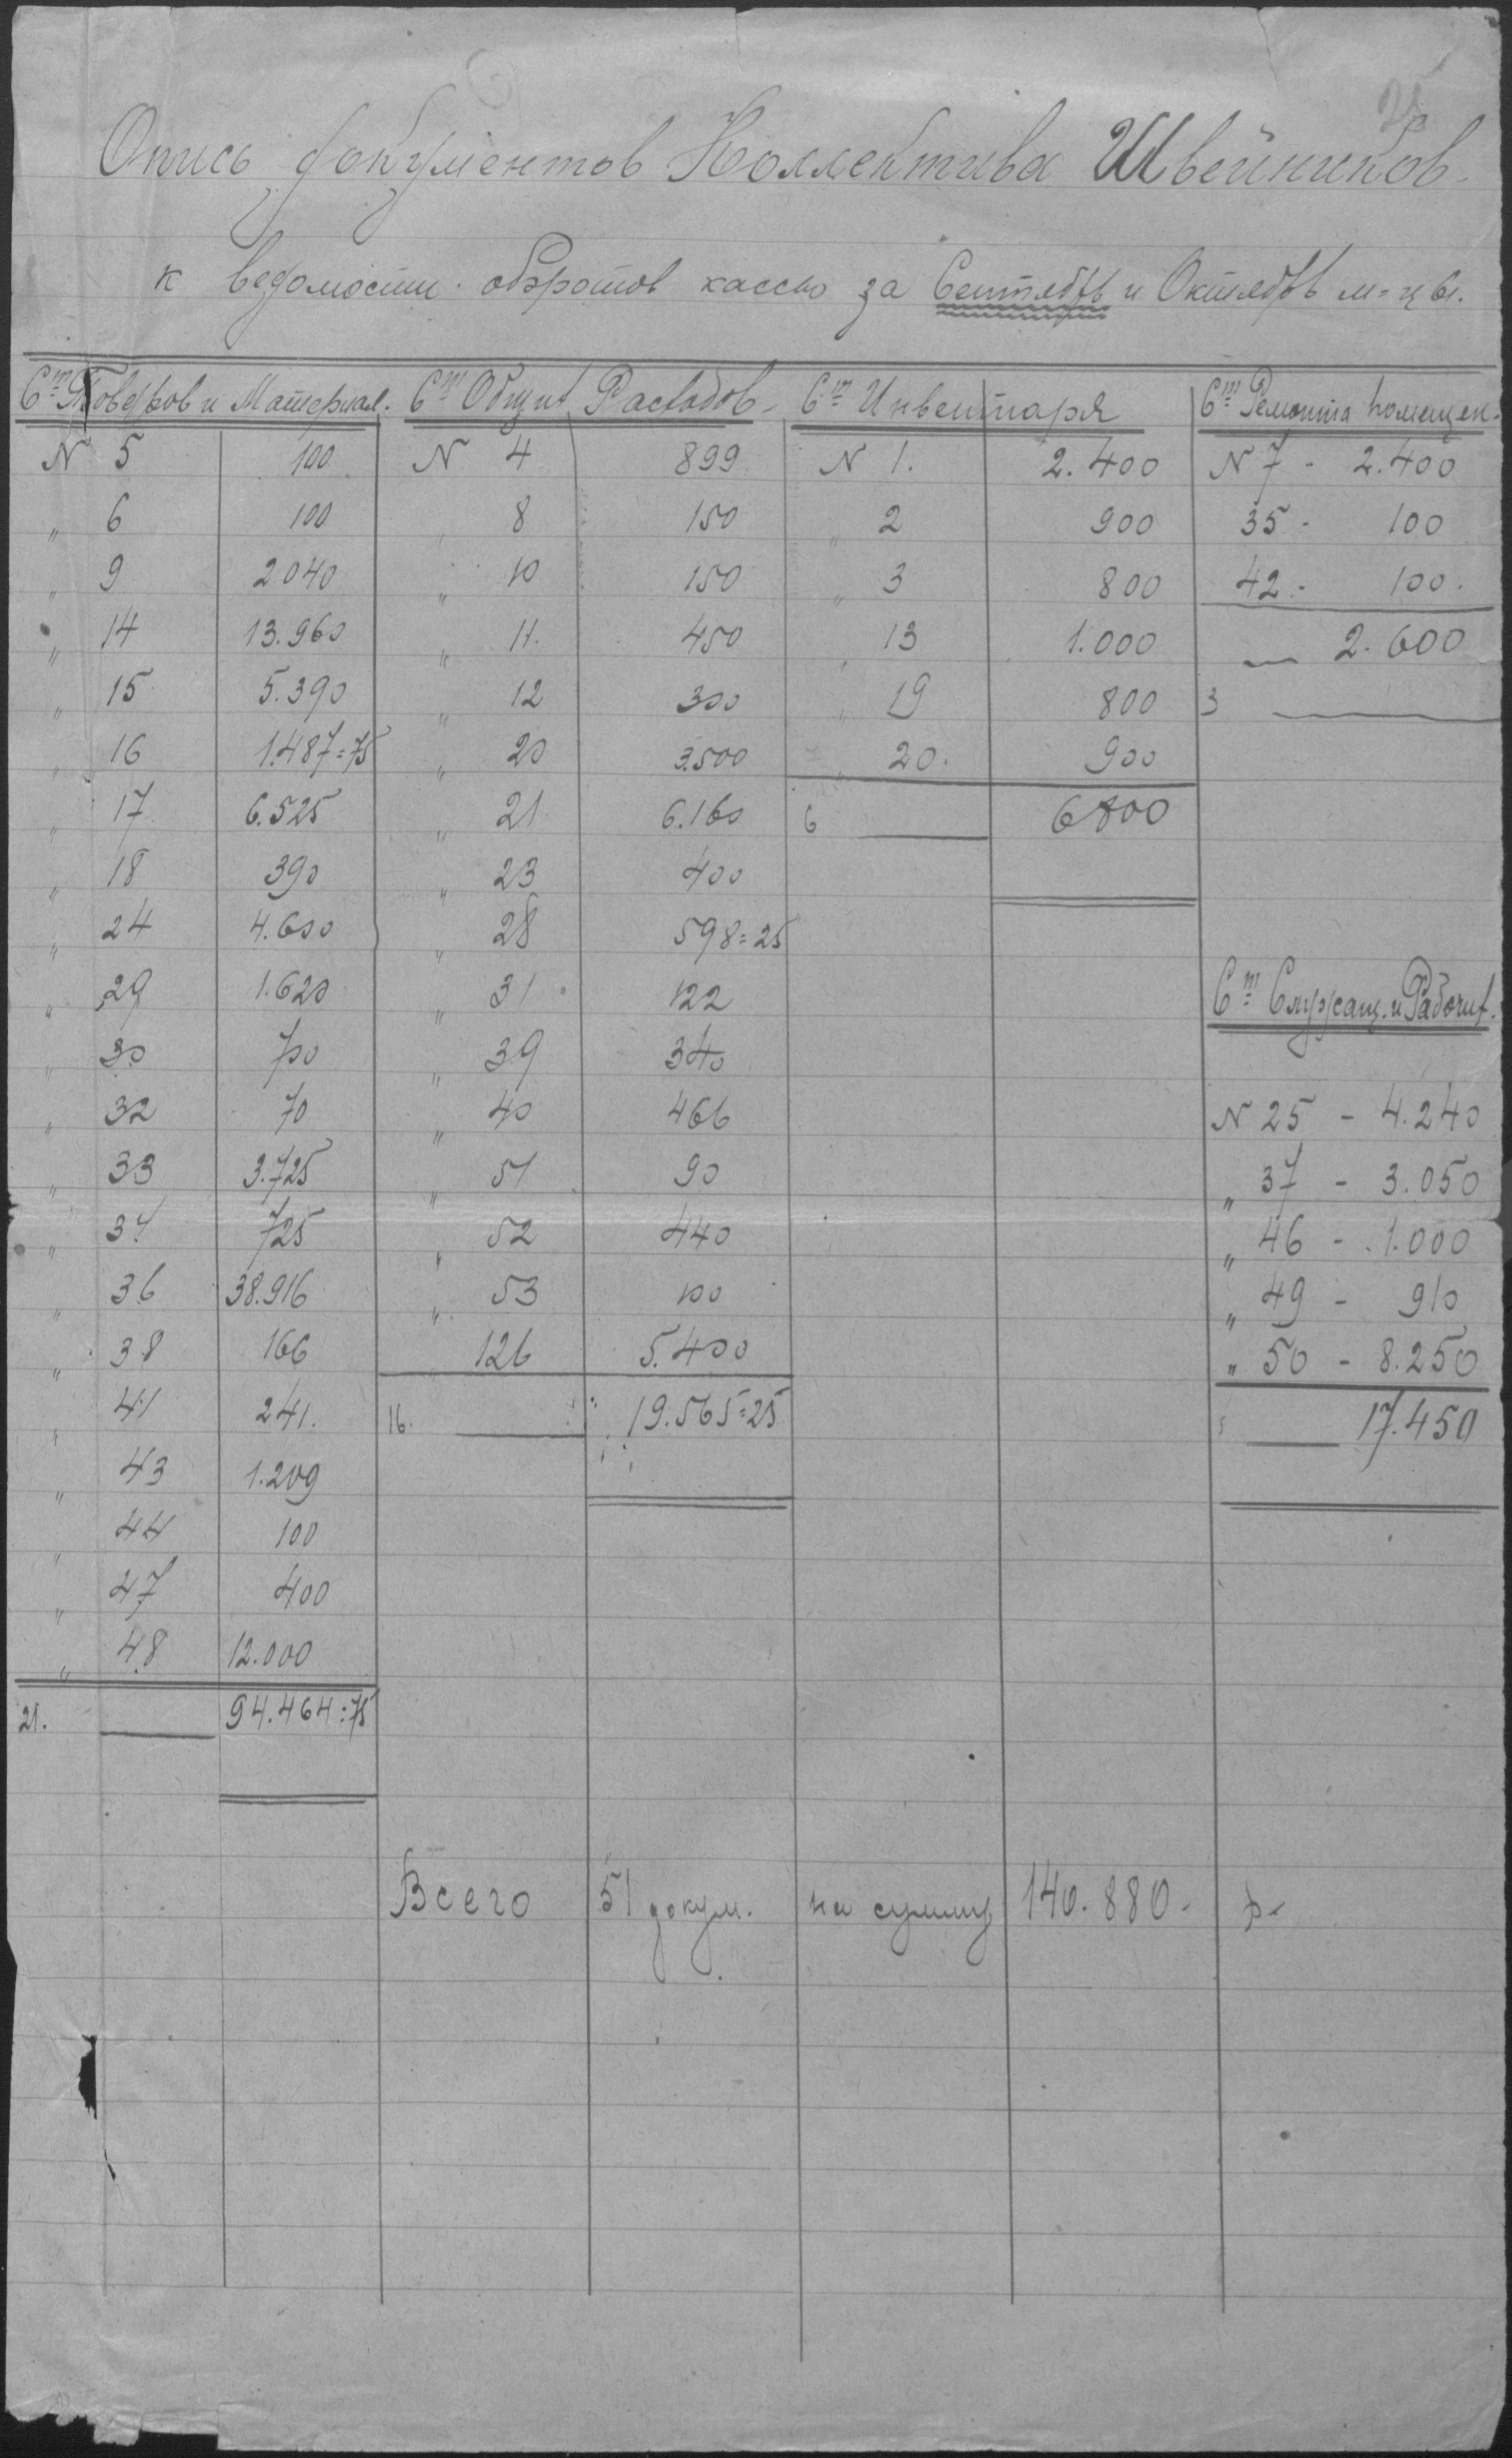 Опись документов Коллектива Швейников.
к ведомости оборотов кассы за Сентябрь и Октябрь м-цы.
Ст Товаров и Материал. Ст Общих Расходов Ст Инвентаря Ст Ремонта помещен.
N 5 100 N 4 899 N 1. 2.400 N 7 - 2.400
" 6 100 " 8 150 " 2 900 35 - 100
" 9 2040 " 10 150 " 3 800 42 - 100.
" 14 13.960 " 11. 450 " 13 1.000 2.600
" 15 5.390 " 12 300 " 19 800 3
" 16 1.487=75 " 20 3.500 " 20. 900
" 17 6.525 " 21 6.160 6 6800
" 18 390 " 23 400
" 24 4.600 " 28 598=25
" 29 1.620 " 31 122
Ст Служащ. и Рабочих.
" 30 700 " 39 340
" 32 70 " 40 466 N 25 - 4.240
" 33 3.725 " 51 90 " 37 - 3.050
" 34 725 " 52 440 " 46 - 1.000
" 36 38.916 " 53 100 " 49 - 910
" 38 166 126 5.400 " 50 - 8.250
" 41 241. 16. 19.565=25 17.450
" 43 1.209
" 44 100
" 47 400
" 48 12.000
21. 94.464=75
Всего 51 докум. на сумму 140.880 - р-